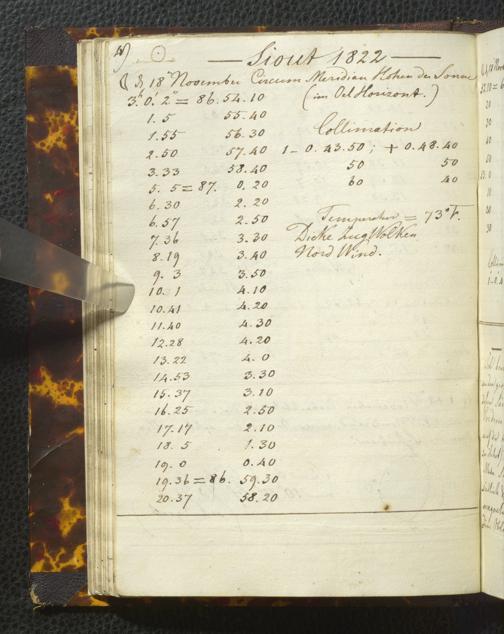 Siout 1822
18 November Circum Meridian Höhen der Sonne
(im Oel Horizont.)
3.0.2 = 86.54.10
1.5 55.40
1.55 56.30
Collimation
2.50 57.40
1 - 0.43.50; + 0.48.40
3.33 58.40
50 50
5.5 = 87. 0.20
60 40
6.30 2.20
6.57 2.50
Temperatur = 73° F.
7.36 3.30
Dicke Zug Wolken
8.19 3.40
Nord Wind.
9.3 3.50
10.1 4.10
10.41 4.20
11.40 4.30
12.28 4.20
13.22 4.0
14.53 3.30
15.37 3.10
16.25 2.50
17.17 2.10
18.5 1.30
19.0 0.40
19.36 = 86. 59.30
20.37 58.20